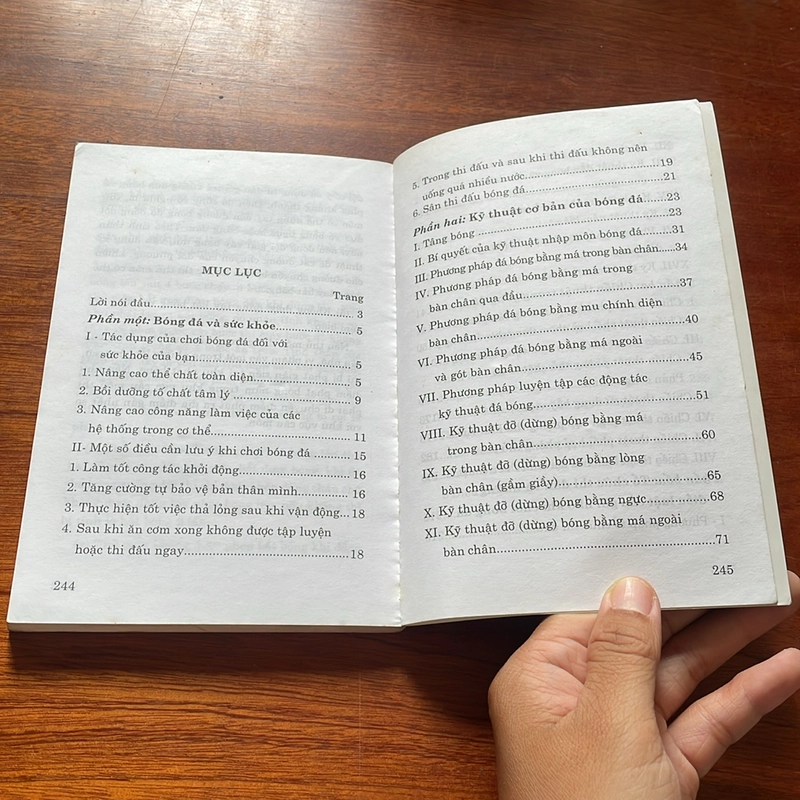 MỤC LỤC
Trang
Lời nói đầu..............................................3
Phần một: Bóng đá và sức khỏe................. 5
I - Tác dụng của chơi bóng đá đối với
sức khỏe của bạn.................................. 5
1. Nâng cao thể chất toàn diện.................... 5
2. Bồi dưỡng tố chất tâm lý ........................ 9
3. Nâng cao công năng làm việc của các
hệ thống trong cơ thể........................... 11
II- Một số điều cần lưu ý khi chơi bóng đá ...... 15
1. Làm tốt công tác khởi động..................... 16
2. Tăng cường tự bảo vệ bản thân mình......... 16
3. Thực hiện tốt việc thả lỏng sau khi vận động...18
4. Sau khi ăn cơm xong không được tập luyện
hoặc thi đấu ngay................................18
244
5. Trong thi đấu và sau khi thi đấu không nên
uống quá nhiều nước.............................19
6. Sân thi đấu bóng đá..............................21
Phần hai: Kỹ thuật cơ bản của bóng đá.......23
I. Tâng bóng .........................................23
II. Bí quyết của kỹ thuật nhập môn bóng đá......31
III. Phương pháp đá bóng bằng má trong bàn chân....34
IV. Phương pháp đá bóng bằng má trong
bàn chân qua đầu.................................37
V. Phương pháp đá bóng bằng mu chính diện
bàn chân...........................................40
VI. Phương pháp đá bóng bằng má ngoài
và gót bàn chân...................................45
VII. Phương pháp luyện tập các động tác
kỹ thuật đá bóng..................................51
VIII. Kỹ thuật đỡ (dừng) bóng bằng má
trong bàn chân....................................60
IX. Kỹ thuật đỡ (dừng) bóng bằng lòng
bàn chân (gầm giầy)..............................65
X. Kỹ thuật đỡ (dừng) bóng bằng ngực...........68
XI. Kỹ thuật đỡ (dừng) bóng bằng má ngoài
bàn chân...........................................71
245